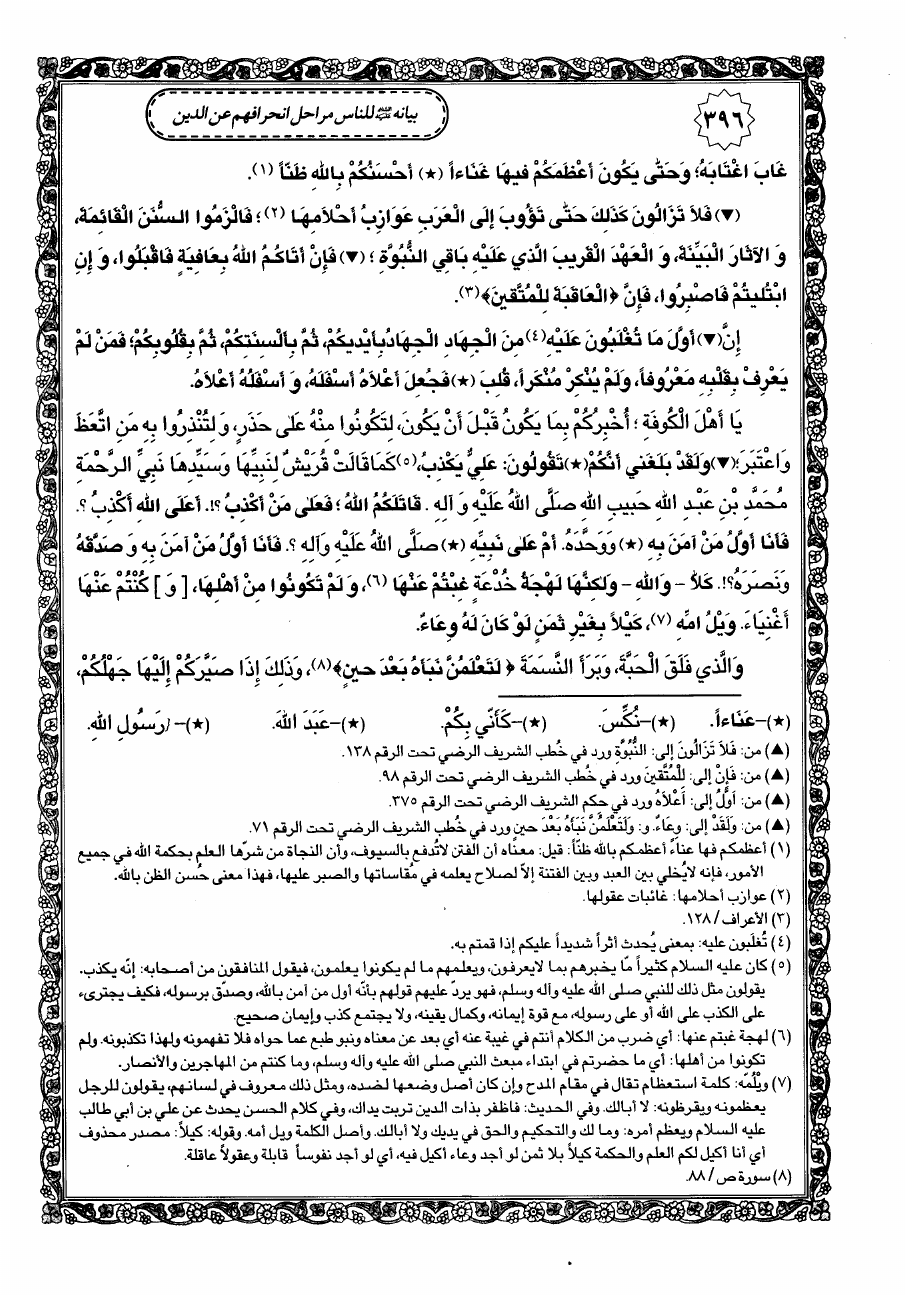 ٣٩٦
بيانه ﷺ للناس مراحل انحرافهم عن الدين
غَابَ اغْتَابَهُ؛ وَحَتّى يَكُونَ أَعْظَمَكُمْ فيهَا غَنَاءاً (★) أَحْسَنُكُمْ بِاللهِ ظَنّاً (١).
(▼) فَلاَ تَزَالُونَ كَذلِكَ حَتّى تَؤُوبَ إِلَى الْعَرَبِ عَوَازِبُ أَحْلاَمِهَا (٢)؛ فَالْزَمُوا السُّنَنَ الْقَائِمَةَ،
وَ الآثَارَ الْبَيِّنَةَ، وَ الْعَهْدَ الْقَريبَ الَّذي عَلَيْهِ بَاقِي النُّبُوَّةِ ؛ (▼) فَإِنْ أَتَاكُمُ اللهُ بِعَافِيَةٍ فَاقْبَلُوا، وَ إِنِ
ابْتُليتُمْ فَاصْبِرُوا، فَإِنَّ ﴿الْعَاقِبَةَ لِلْمُتَّقينَ﴾(٣).
إِنَّ(▼) أَوَّلَ مَا تُغْلَبُونَ عَلَيْهِ(٤) مِنَ الْجِهَادِ الْجِهَادُ بِأَيْديكُمْ، ثُمَّ بِأَلْسِنَتِكُمْ، ثُمَّ بِقُلُوبِكُمْ؛ فَمَنْ لَمْ
يَعْرِفْ بِقَلْبِهِ مَعْرُوفاً، وَلَمْ يُنْكِرْ مُنْكَراً، قُلِبَ (★) فَجُعِلَ أَعْلاَهُ أَسْفَلَهُ، وَ أَسْفَلُهُ أَعْلاَهُ.
يَا أَهْلَ الْكُوفَةِ ؛ أُخْبِرُكُمْ بِمَا يَكُونُ قَبْلَ أَنْ يَكُونَ، لِتَكُونُوا مِنْهُ عَلى حَذَرٍ، وَ لِتُنْذِرُوا بِهِ مَنِ اتَّعَظَ
وَاعْتَبَرَ؛ (▼) وَلَقَدْ بَلَغَني أَنَّكُمْ (★) تَقُولُونَ: عَلِيٌّ يَكْذِبُ،(٥) كَمَا قَالَتْ قُرَيْشٌ لِنَبِيِّهَا وَسَيِّدِهَا نَبِيِّ الرَّحْمَةِ
مُحَمَّدِ بْنِ عَبْدِ اللهِ حَبيبِ اللهِ صَلَّى اللهُ عَلَيْهِ وَ آلِهِ . قَاتَلَكُمُ اللهُ ؛ فَعَلى مَنْ أَكْذِبُ؟!. أَعَلَى اللهِ أَكْذِبُ ؟.
فَأَنَا أَوَّلُ مَنْ آمَنَ بِهِ (★) وَوَحَّدَهُ. أَمْ عَلى نَبِيِّهِ (★) صَلَّى اللهُ عَلَيْهِ وَآلِهِ ؟. فَأَنَا أَوَّلُ مَنْ آمَنَ بِهِ وَ صَدَّقَهُ
وَنَصَرَهُ؟!. كَلاَّ - وَاللهِ - وَلكِنَّهَا لَهْجَةُ خُدْعَةٍ غِبْتُمْ عَنْهَا (٦)، وَ لَمْ تَكُونُوا مِنْ أَهْلِهَا، [ وَ ] كُنْتُمْ عَنْهَا
أَغْنِيَاءَ. وَيْلُ امِّهِ (٧)، كَيْلاً بِغَيْرِ ثَمَنٍ لَوْ كَانَ لَهُ وِعَاءٌ.
وَالَّذي فَلَقَ الْحَبَّةَ، وَبَرَأَ النَّسَمَةَ ﴿ لَتَعْلَمُنَّ نَبَأَهُ بَعْدَ حينٍ﴾(٨)، وَذلِكَ إِذَا صَيَّرَكُمْ إِلَيْهَا جَهْلُكُمْ،
(★)- عَنَاءاً. (★)- نُكِّسَ. (★)- كَأَنّي بِكُمْ. (★)- عَبَدَ اللهَ. (★)- رَسُولِ اللهِ.
(▲) من: فَلاَ تَزَالُونَ إلى: النُّبُوَّةِ ورد في خُطب الشريف الرضي تحت الرقم ١٣٨.
(▲) من: فَإِنْ إلى: لِلْمُتَّقينَ ورد في خُطب الشريف الرضي تحت الرقم ٩٨.
(▲) من: أَوَّلُ إلى: أَعْلاَهُ ورد في حكم الشريف الرضي تحت الرقم ٣٧٥.
(▲) من: وَلَقَدْ إلى: وِعَاءٌ. و: وَلَتَعْلَمُنَّ نَبَأَهُ بَعْدَ حينٍ ورد في خُطب الشريف الرضي تحت الرقم ٧١.
(١) أعظمكم فها عناءً أعظمكم بالله ظنّاً: قيل: معناه أن الفتن لا تُدفع بالسيوف، وأن النجاة من شرّها العلم بحكمة الله في جميع
الأمور، فإنه لا يُخلي بين العبد وبين الفتنة إلاّ لصلاح يعلمه في مُقاساتها والصبر عليها، فهذا معنى حُسن الظن بالله.
(٢) عوازب أحلامها: غائبات عقولها.
(٣) الأعراف / ١٢٨.
(٤) تُغلَبون عليه: بمعنى يُحدث أثراً شديداً عليكم إذا قمتم به.
(٥) كان عليه السلام كثيراً مّا يخبرهم بما لا يعرفون، ويعلمهم ما لم يكونوا يعلمون، فيقول المنافقون من أصحابه: إنّه يكذب.
يقولون مثل ذلك للنبي صلى الله عليه وآله وسلم، فهو يردّ عليهم قولهم بأنّه أول من آمن بالله، وصدّق برسوله، فكيف يجترىء
على الكذب على الله أو على رسوله، مع قوة إيمانه، وكمال يقينه، ولا يجتمع كذب وإيمان صحيح.
(٦) لهجة غبتم عنها: أي ضرب من الكلام أنتم في غيبة عنه أي بعد عن معناه ونبو طبع عما حواه فلا تفهمونه ولهذا تكذبونه. ولم
تكونوا من أهلها: أي ما حضرتم في ابتداء مبعث النبي صلى الله عليه وآله وسلم، وما كنتم من المهاجرين والأنصار.
(٧) ويْلُمّه: كلمة استعظام تقال في مقام المدح وإن كان أصل وضعها لضده، ومثل ذلك معروف في لسانهم، يقولون للرجل
يعظمونه ويقرظونه: لا أبالك. وفي الحديث: فاظفر بذات الدين تربت يداك، وفي كلام الحسن يحدث عن علي بن أبي طالب
عليه السلام ويعظم أمره: وما لك والتحكيم والحق في يديك ولا أبالك. وأصل الكلمة ويل أمه. وقوله: كيلاً: مصدر محذوف
أي أنا أكيل لكم العلم والحكمة كيلاً بلا ثمن لو أجد وعاء أكيل فيه، أي لو أجد نفوساً قابلة وعقولاً عاقلة.
(٨) سورة ص / ٨٨.